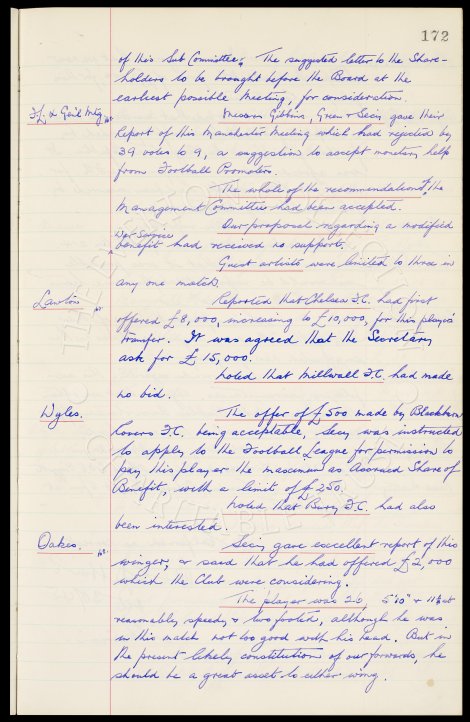 172
of this Sub Committee. The suggested letter to the Share-
holders to be brought before the Board at the
earliest possible Meeting, for consideration.
F/L & Genl Mtg Messrs Gibbins, Green & Secy gave their
report of this Manchester Meeting which had rejected by
39 votes to 9, a suggestion to accept monetary help
from Football Promoters.
The whole of the recommendations of the
Management Committee had been accepted.
Our proposal regarding a modified
War Service
benefit had received no support.
Guest artists were limited to three in
any one match.
Lawton Reported that Chelsea F.C. had first
offered £8,000, increasing to £10,000, for this player's
transfer. It was agreed that the Secretary
ask for £15,000.
Noted that Millwall F.C. had made
no bid.
Wyles. The offer of £500 made by Blackburn
Rovers F.C. being acceptable, Secy was instructed
to apply to the Football League for permission to
pay this player the maximum as Accrued Share of
Benefit, with a limit of £250.
Noted that Bury F.C. had also
been interested.
Oakes. Secy gave excellent report of this
winger, & said that he had offered £2,000
which the Club were considering.
The player was 26, 5'10" & 11½ st
reasonably speedy & two footed, although he was
in this match not too good with his head. But in
the present likely constitution of our forwards, he
should be a great asset to either wing.